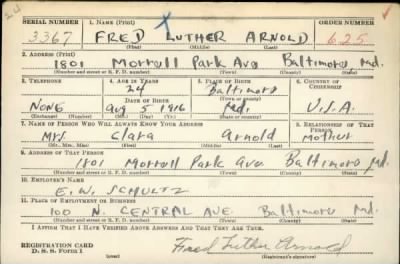 24
SERIAL NUMBER 1. NAME (Print) ORDER NUMBER
3367 FRED LUTHER ARNOLD 625
(First) (Middle) (Last)
2. ADDRESS (Print)
1801 Morrell Park Ave Baltimore, Md.
(Number and street or R. F. D. number) (Town) (County) (State)
3. TELEPHONE 4. AGE IN YEARS 5. PLACE OF BIRTH 6. COUNTRY OF CITIZENSHIP
24 Baltimore
DATE OF BIRTH (Town or county)
NONE Aug 5 1916 Md. U.S.A
(Exchange) (Number) (Mo.) (Day) (Yr.) (State or country)
7. NAME OF PERSON WHO WILL ALWAYS KNOW YOUR ADDRESS 8. RELATIONSHIP OF THAT PERSON
Mrs. Clara Arnold Mother
(Mr., Mrs., Miss) (First) (Middle) (Last)
9. ADDRESS OF THAT PERSON
1801 Morrell Park Ave Baltimore Md.
(Number and street or R. F. D. number) (Town) (County) (State)
10. EMPLOYER'S NAME
E. W. SCHULTZ
11. PLACE OF EMPLOYMENT OR BUSINESS
100 N. CENTRAL AVE. Baltimore Md.
(Number and street or R. F. D. number) (Town) (County) (State)
I AFFIRM THAT I HAVE VERIFIED ABOVE ANSWERS AND THAT THEY ARE TRUE.
REGISTRATION CARD
D. S. S. FORM 1 Fred Luther Arnold
(Registrant's signature)